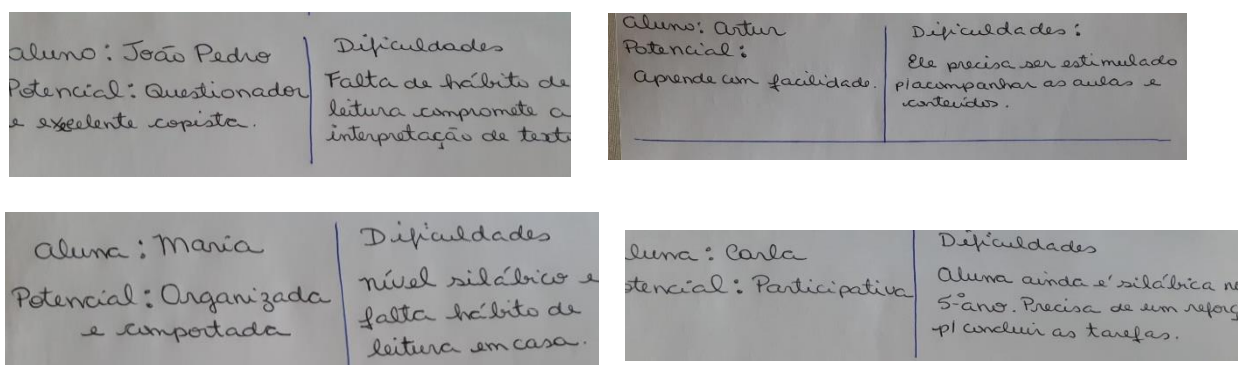 Aluno: João Pedro
Potencial: Questionador
e excelente copista.
Dificuldades
Falta de hábito de
leitura compromete a
interpretação de text
Aluno: Artur
Potencial:
Aprende com facilidade.
Dificuldades:
Ele precisa ser estimulado
p/acompanhar as aulas e
conteúdos.
Aluna: Maria
Potencial: Organizada
e comportada
Dificuldades
nível silábico e
falta hábito de
leitura em casa.
luna: Carla
tencial: Participativa
Dificuldades
Aluna ainda é silábica n
5º ano. Precisa de um reforç
p/ concluir as tarefas.